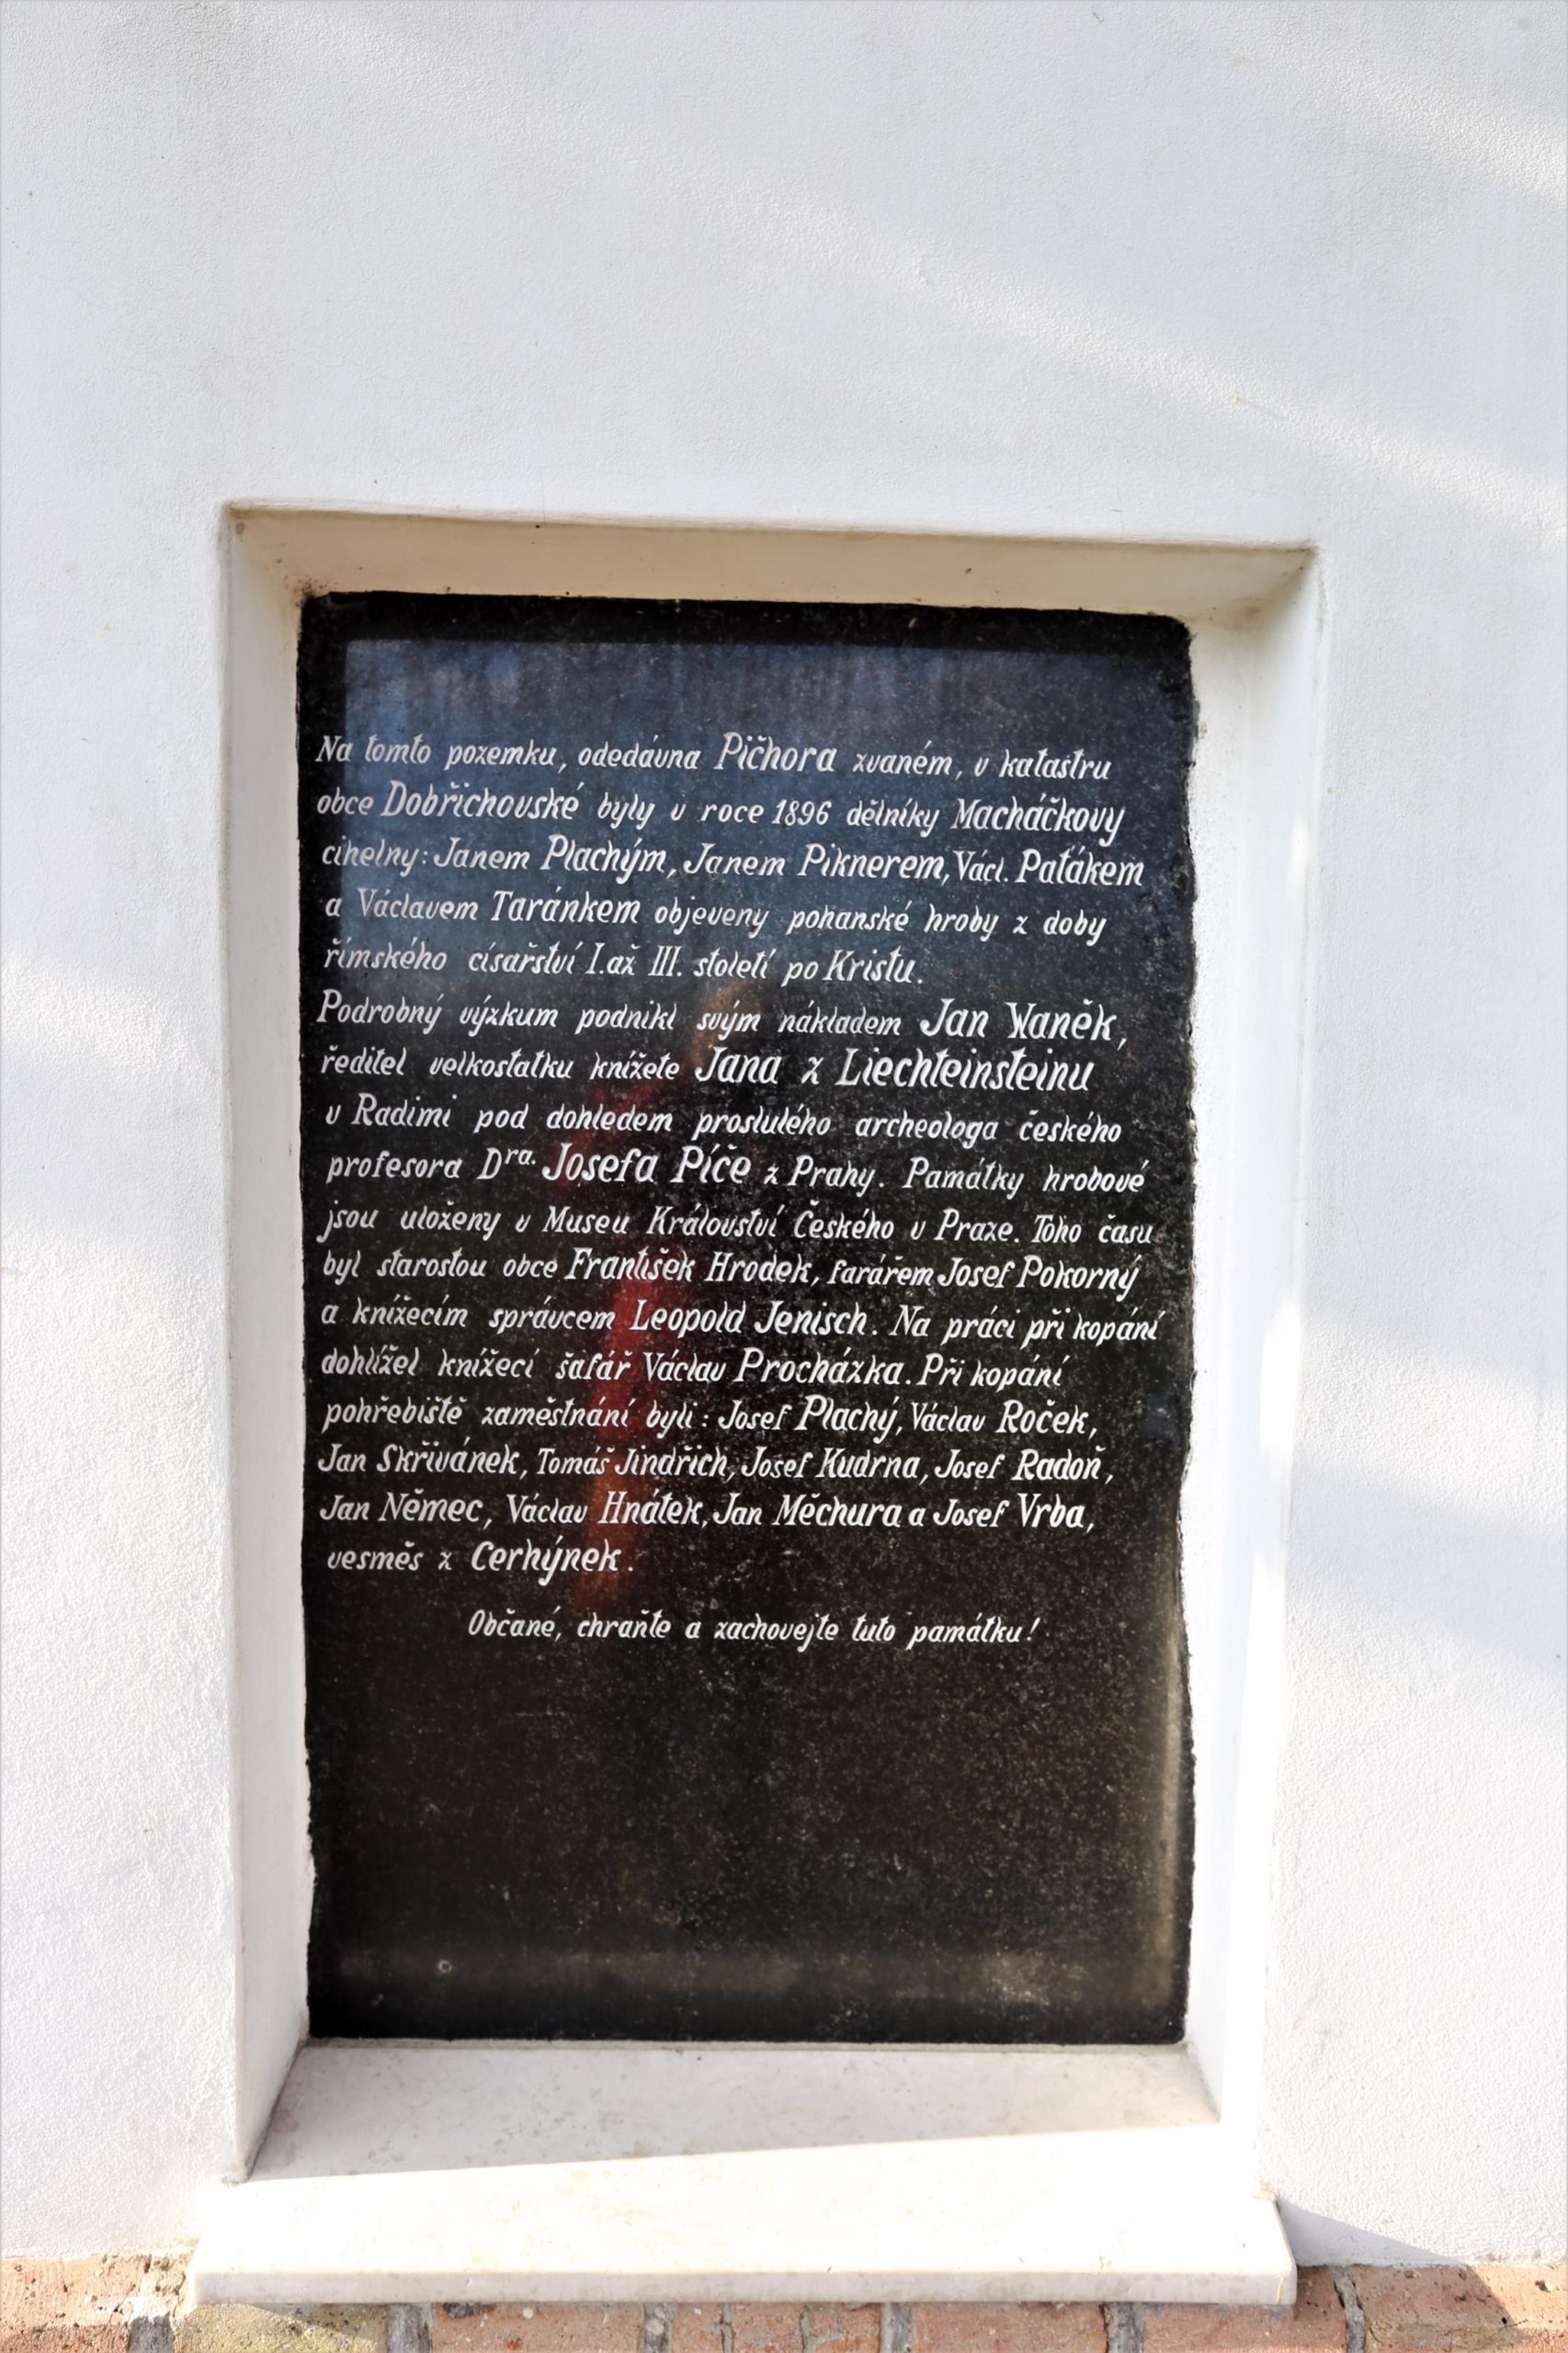 Na tomto pozemku, odedávna Pičhora zvaném, v katastru
obce Dobřichovské byly v roce 1896 dělníky Macháčkovy
cihelny: Janem Plachým, Janem Piknerem, Václ. Paťákem
a Václavem Taránkem objeveny pohanské hroby z doby
římského císařství I. až III. století po Kristu.
Podrobný výzkum podnikl svým nákladem Jan Waněk,
ředitel velkostatku knížete Jana z Liechteinsteinu
v Radimi pod dohledem proslulého archeologa českého
profesora Dra. Josefa Píče z Prahy. Památky hrobové
jsou uloženy v Museu Království Českého v Praze. Toho času
byl starostou obce František Hrodek, farářem Josef Pokorný
a knížecím správcem Leopold Jenisch. Na práci při kopání
dohlížel knížecí šafář Václav Procházka. Při kopání
pohřebiště zaměstnání byli: Josef Plachý, Václav Roček,
Jan Skřivánek, Tomáš Jindřich, Josef Kudrna, Josef Radoň,
Jan Němec, Václav Hnátek, Jan Měchura a Josef Vrba,
vesměs z Cerhýnek.
Občané, chraňte a zachovejte tuto památku!